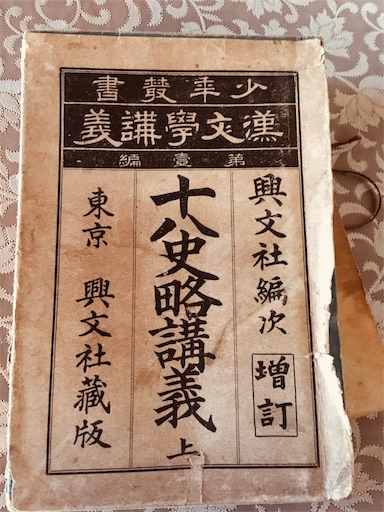 少年叢書
漢文學講義
第壹編
興文社編次 增訂
十八史略講義 上
東京 興文社藏版